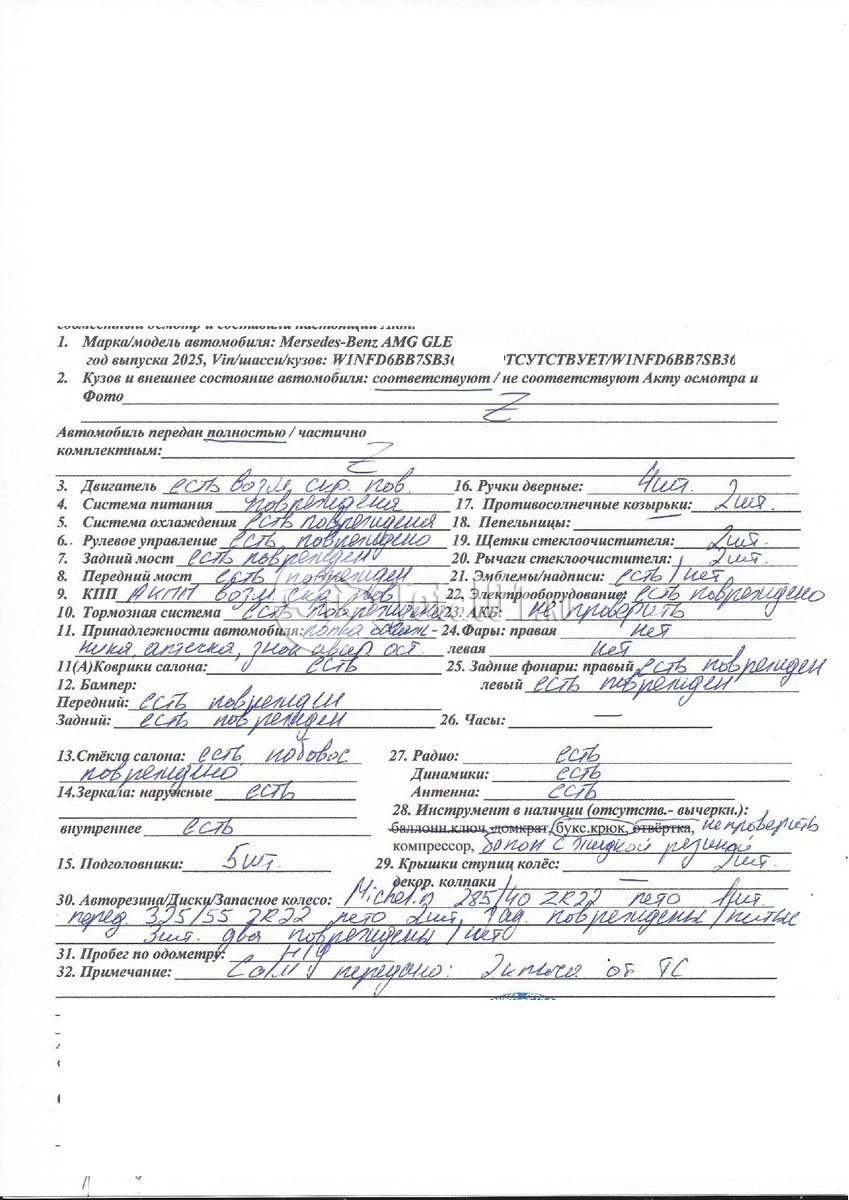 совместный осмотр и составили настоящий Акт.
1. Марка/модель автомобиля: Mersedes-Benz AMG GLE
год выпуска 2025, Vin/шасси/кузов: W1NFD6BB7SB36 ОТСУТСТВУЕТ/W1NFD6BB7SB36
2. Кузов и внешнее состояние автомобиля: соответствуют / не соответствуют Акту осмотра и
Фото
Z
Автомобиль передан полностью / частично
комплектным: Z
3. Двигатель есть возм. скр. пов. 16. Ручки дверные: 4шт.
4. Система питания повреждена 17. Противосолнечные козырьки: 2шт.
5. Система охлаждения есть повреждения 18. Пепельницы: —
6. Рулевое управление есть повреждено 19. Щетки стеклоочистителя: 2шт.
7. Задний мост есть поврежден 20. Рычаги стеклоочистителя: 2шт.
8. Передний мост есть поврежден 21. Эмблемы/надписи: есть / нет
9. КПП АКПП возм. скр. пов 22. Электрооборудование: есть повреждено
10. Тормозная система есть повреждена 23. АКБ: не проверить
11. Принадлежности автомобиля: полка багаж- 24. Фары: правая нет
ника, аптечка, знак авар. ост. левая нет
11(А)Коврики салона: есть 25. Задние фонари: правый есть поврежден
12. Бампер: левый есть поврежден
Передний: есть поврежден
Задний: есть поврежден 26. Часы: —
13.Стёкла салона: есть, лобовое 27. Радио: есть
повреждено Динамики: есть
14.Зеркала: наружные есть Антенна: есть
28. Инструмент в наличии (отсутств.- вычеркн.):
внутреннее есть баллонн.ключ, домкрат, букс.крюк, отвёртка, не проверить
компрессор, балон с жидкой резиной
15. Подголовники: 5шт. 29. Крышки ступиц колёс: 2шт.
декор. колпаки —
30. Авторезина/Диски/Запасное колесо: Michelin 285/40 ZR22 лето 1шт.
перед. 325/55 ZR22 лето 2шт, зад. повреждены / литые
3шт. два повреждены / нет
31. Пробег по одометру: Н/Д
32. Примечание: передано: 2 ключа от ТС